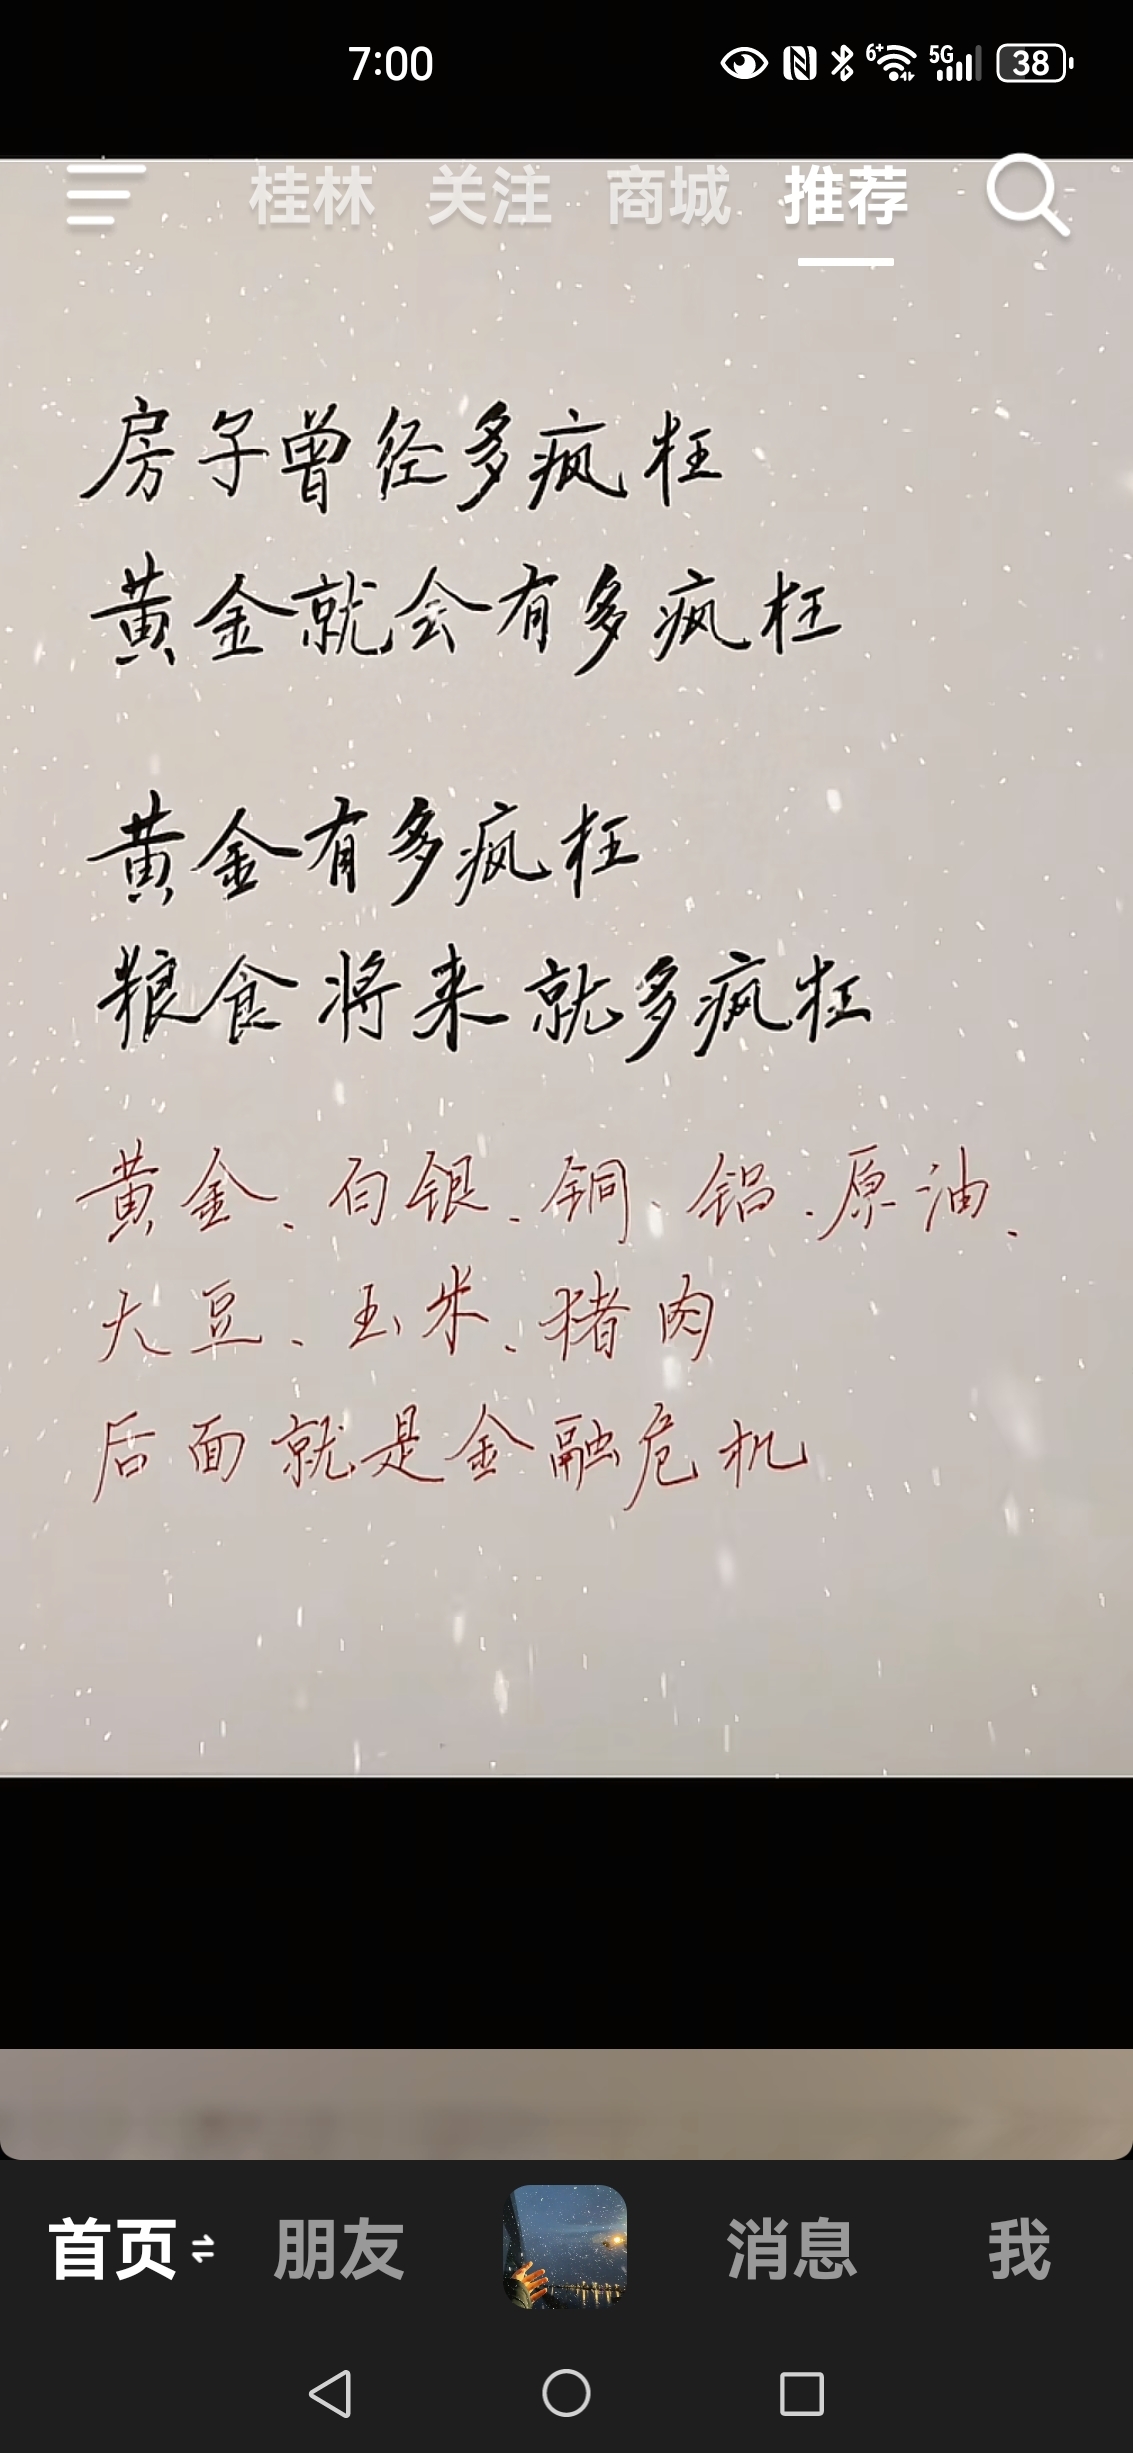 7:00 6+ 5G 38
桂林 关注 商城 推荐
房子曾经多疯狂
黄金就会有多疯狂
黄金有多疯狂
粮食将来就多疯狂
黄金、白银、铜、铝、原油、
大豆、玉米、猪肉
后面就是金融危机
首页 朋友 消息 我